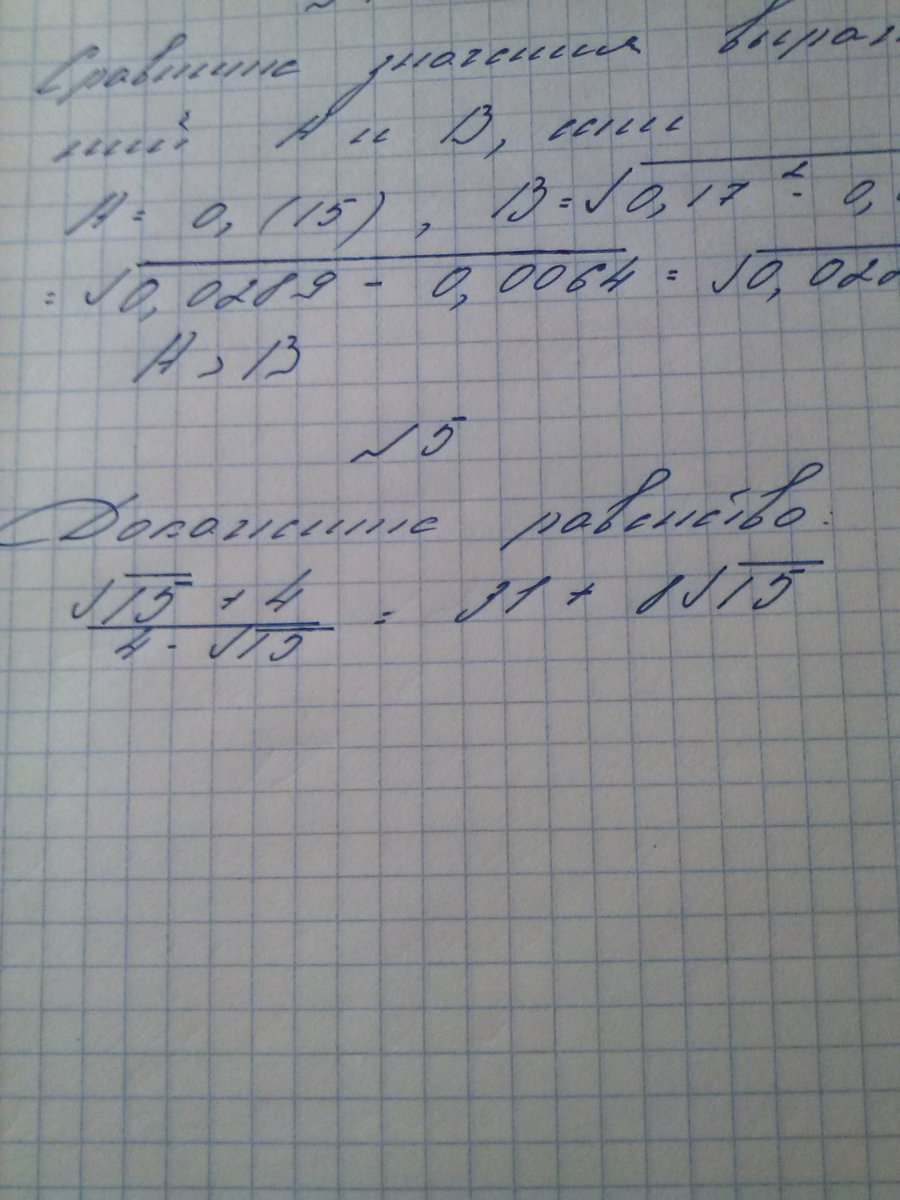 Сравните значения выраже
ний A и B, если
A = 0,(15), B = √0,17² - 0,
= √0,0289 - 0,0064 = √0,022
A > B
√5
Докажите равенство:
√15 + 4 / 4 - √15 = 31 + 8√15